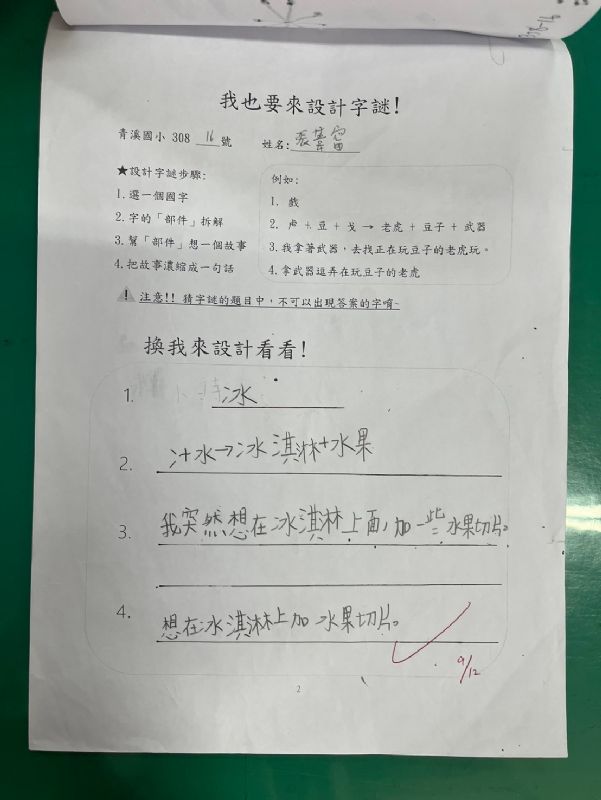 我也要來設計字謎!
青溪國小 308 16 號 姓名:
★設計字謎步驟:
1.選一個國字
2.字的「部件」拆解
3.幫「部件」想一個故事
4.把故事濃縮成一句話
例如:
1. 戲
2. 虍 + 豆 + 戈 → 老虎 + 豆子 + 武器
3.我拿著武器,去找正在玩豆子的老虎玩。
4.拿武器逗弄在玩豆子的老虎
! 注意!! 猜字謎的題目中,不可以出現答案的字唷~
換我來設計看看!
1. 冰
2. 冫+水→冰淇淋+水果
3. 我突然想在冰淇淋上面,加一些水果切片。
4. 想在冰淇淋上加水果切片。
9/12
2